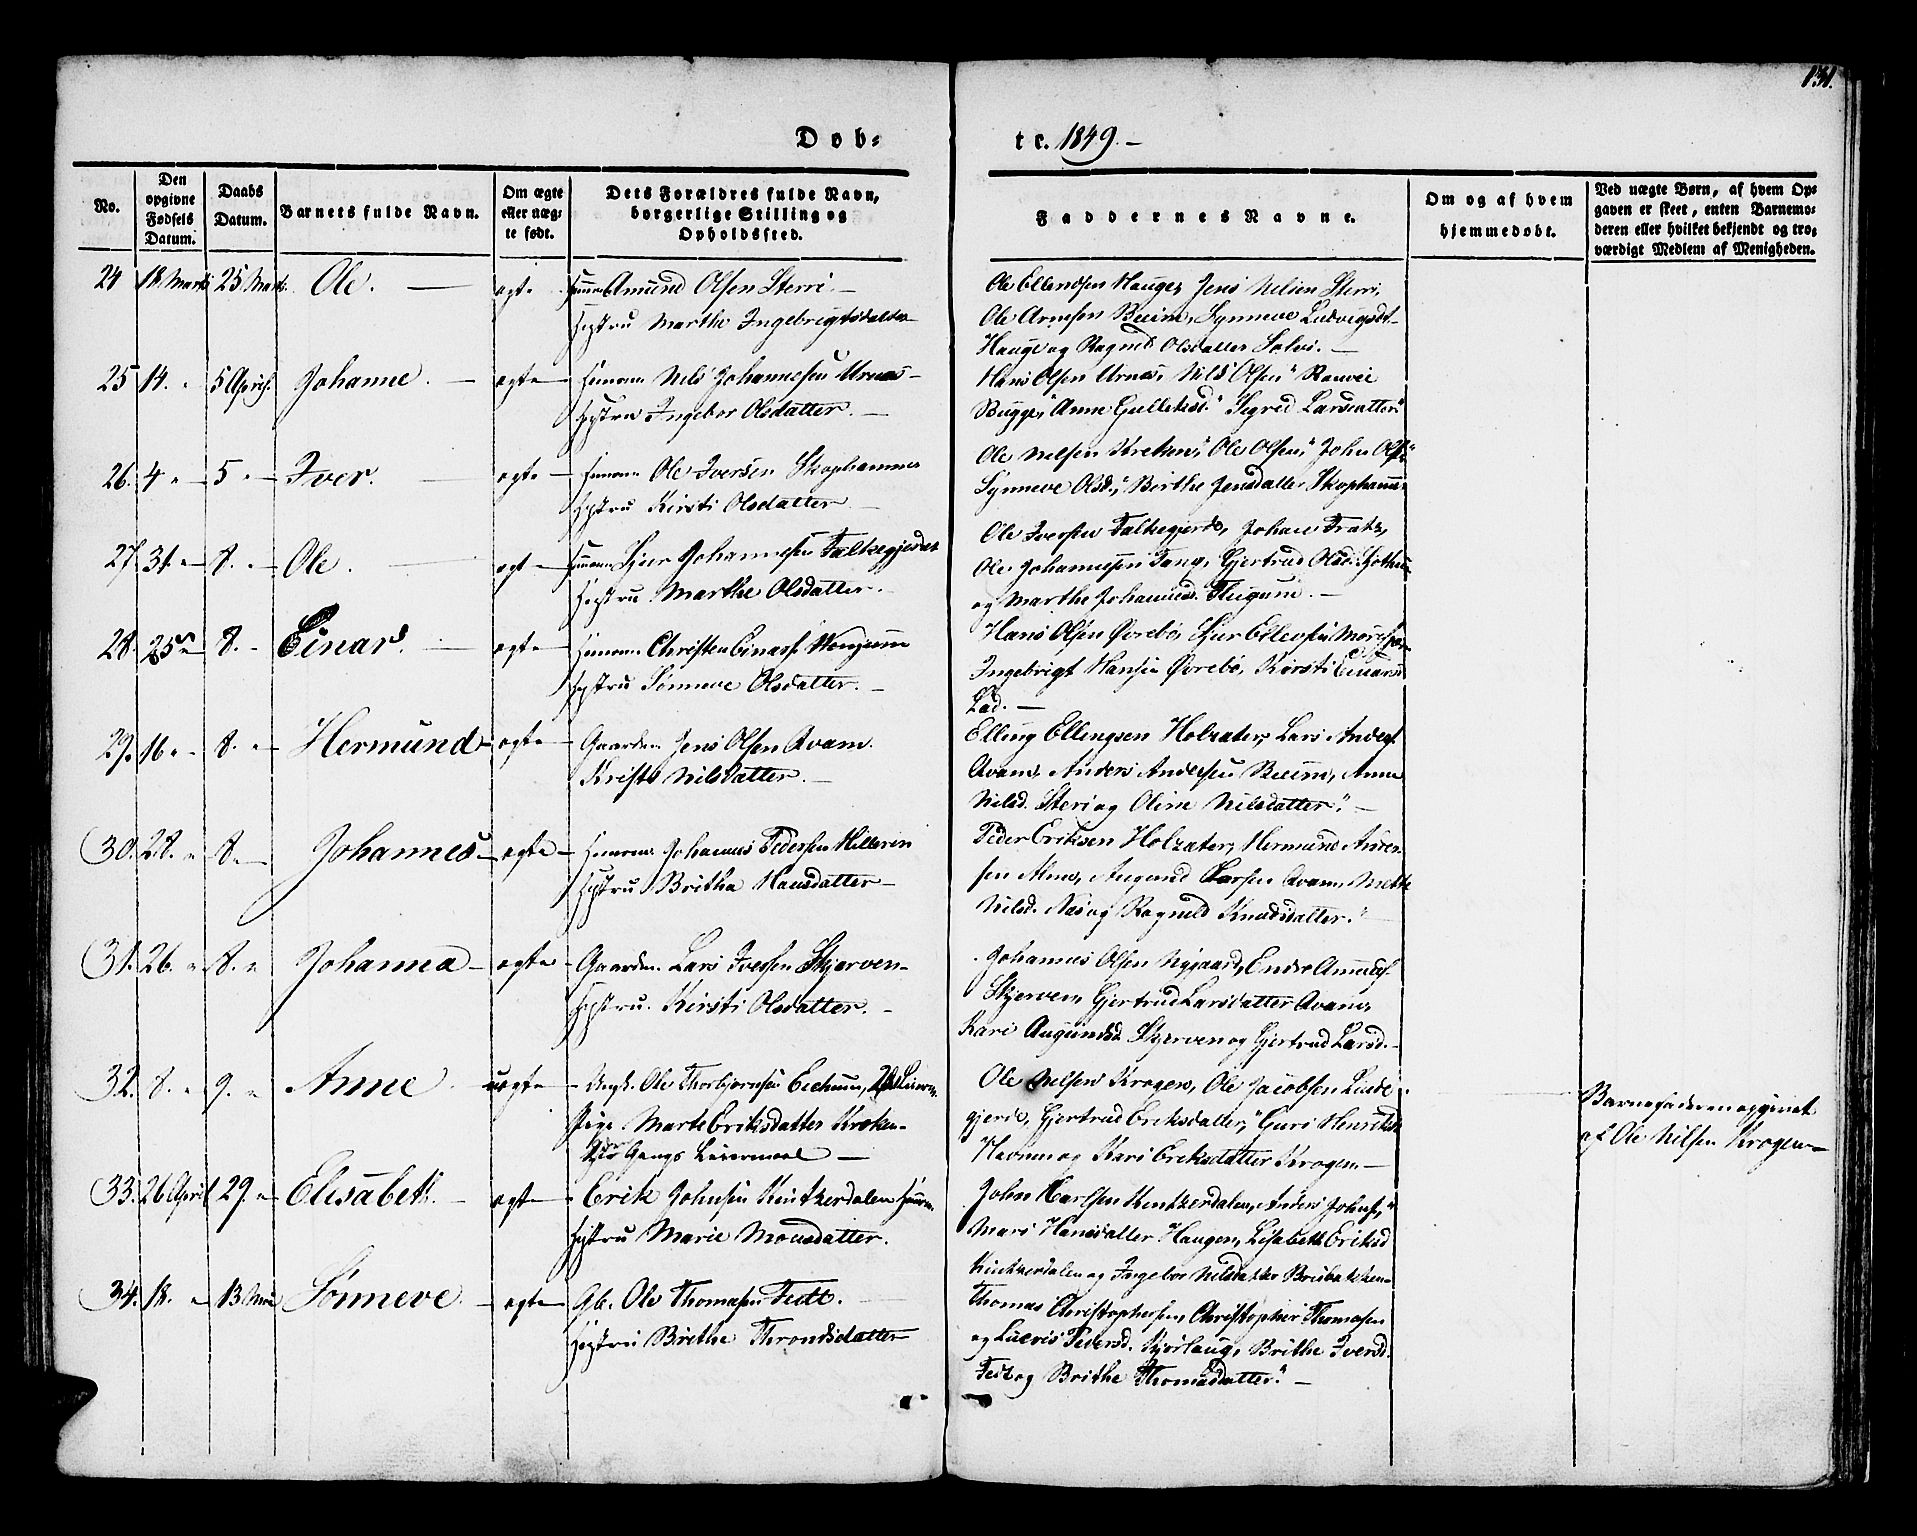 131.
Døb- te. 1849.-
No.
Den opgivne Fødsels Datum.
Daabs Datum.
Barnets fulde Navn.
Om ægte eller uæg- te født.
Dets Forældres fulde Navn, borgerlige Stilling og Opholdssted.
Faddernes Navne.
Om og af hvem hjemmedøbt.
Ved uægte Børn, af hvem Op- gaven er skeet, enten Barnemo- deren eller hvilket bekjendt og tro- værdigt Medlem af Menigheden.
24 18 Marts 25 Marts Ole. - ægte Amund Olsen Sterri. -
Hustru Marthe Ingebrigtsdatter
Ole Ellendsen Hauge, Jens Nelsen Sterri,
Ole Arnesen Beim, Synneve Ludvigsdt
Hauge og Ragnild Olsdatter Solvi. -
25 14. " 5 April. Johanne. - ægte - Huusm Nils Johannesen Urnes -
Hustru Ingebor Olsdatter. -
Hans Olsen Urnes, Nils Olsen "
Bugge, Anne " Sigrid Larsdatter "
26. 4 " 5 " Iver. - ægte - Huusm Ole Iversen
Hustru Kirsti Olsdatter -
Ole Nelsen Kroken, Ole Olsen " John Ols. "
Synneve Olsd. " Birthe Jensdatter
27. 31 " 8. " Ole. - ægt - Johannesen
Hustru Marthe Olsdatter. -
Ole Iversen Falkegjerde, Johan
Ole Johannesen Fang, Gjertrud Olsd.
og Marthe Johannesd. Flugum. -
28. 25 " 8. - Einar. - ægte - Huusm Christen Einars.
Hustru Sønneve Olsdatter. -
Hans Olsen Øvrebø,
Ingebrigt Hansen Øvrebø, Kirsti Einarsd
Lad. -
29. 16 " 8. " Hermund - ægte - Gaardm. Jens Olsen Qvam.
Kristi Nilsdatter. -
Elling Ellingsen Holsæter, Lars Anders.
Qvam, Anders Andersen Beim, Anne
Nilsd. Steri og Oline Nilsdatter. " -
30. 28. " 8. - Johannes - ægte - Huusm Johannes Pedersen Hilleren
Hustru Britha Hansdatter -
Peder Eriksen Holsæter, Hermund Ander-
sen Alme, Augund Larsen Qvam, Mette
Nilsd. Næs og Ragnild Knudsdatter. "
31. 26. " 8. " Johanna - ægte - Gaardm. Lars Iversen Skjerven -
Hustru. Kirsti Olsdatter. -
Johannes Olsen Nygaard, Endre Amunds.
Skjerven, Gjertrud Larsdatter Qvam,
Kari Augundsd. Skjerven og Gjertrud Larsd. -
32. 8. " 9. " Anne - uægte - Ungk. Ole Thorbjørnsen
Pige Marte Eriksdatter Kroken -
Gangs Leiermaal -
Ole Nilsen Krogen, Ole Jacobsen Linde
gjerde, Gjertrud Eriksdatter, " Guri Henriksd.
Havnen og Kari Eriksdatter Krogen -
Barnefaderen opgivet
af Ole Nilsen Krogen -
33. 26 April 29. " Elisabeth. - ægte - Erik Johnsen Kintzerdalen Huusm.
Hustru Marie Monsdatter.
John Karlsen Kintzerdalen, Anders Johns., "
Mari Hansdatter Haugen, Lisabeth Eriksd
Kintzerdalen og Ingebor Nilsdatter
34. 18. " 13 Mai Sønneve. - ægte - Gb. Ole Thomasen Feet. -
Hustru Birthe Throndsdatter
Thomas Christophersen, Christopher Thomasen
og Pedersd. Kjørlaug, Brithe Iversd.
Feet og Brithe Thomasdatter. " -